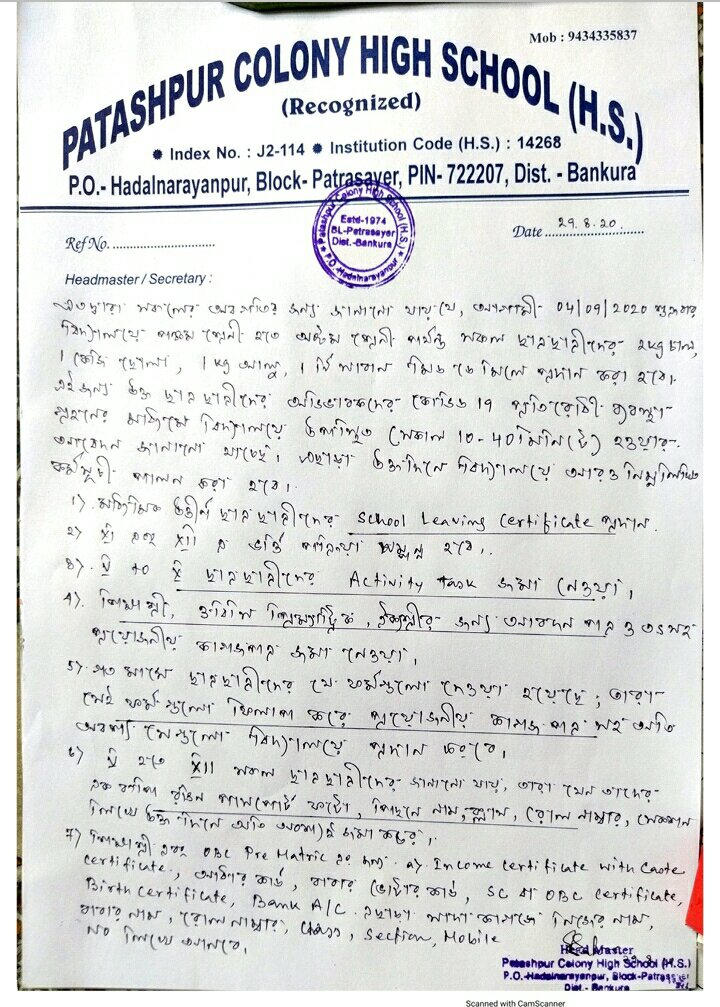 Mob : 9434335837
PATASHPUR COLONY HIGH SCHOOL (H.S.)
(Recognized)
✹ Index No. : J2-114 ✹ Institution Code (H.S.) : 14268
P.O.- Hadalnarayanpur, Block- Patrasayer, PIN- 722207, Dist. - Bankura
Patashpur Colony High School (H.S)
Estd-1974
BL-Patrasayer
Dist.-Bankura
P.O.-Hadalnarayanpur
Ref No. ..............................
Date 29.8.20.
Headmaster / Secretary :
এতদ্বারা সকলের অবগতির জন্য জানানো যায় যে, আগামী 04/09/2020 শুক্রবার
বিদ্যালয়ে পঞ্চম শ্রেনী হতে অষ্টম শ্রেনী পর্যন্ত সকল ছাত্রছাত্রীদের 2kg চাল,
1 কেজি ছোলা, 1 kg আলু, 1 টি সাবান মিড ডে মিলে প্রদান করা হবে।
এইজন্য উক্ত ছাত্রছাত্রীদের অভিভাবকদের কোভিড 19 প্রতিরোধী ব্যবস্থা
গ্রহনের মাধ্যমে বিদ্যালয়ে উপস্থিত (সকাল 10-40 মিনিটে) হওয়ার
আবেদন জানানো যাচ্ছে। এছাড়া উক্ত দিনে বিদ্যালয়ে আরও নিম্নলিখিত
কর্মসূচী পালন করা হবে।
1) মাধ্যমিক উত্তীর্ণ ছাত্রছাত্রীদের School Leaving Certificate প্রদান.
2) XI এবং XII এ ভর্তি প্রক্রিয়া সম্পন্ন হবে।
3) V to X ছাত্রছাত্রীদের Activity task জমা নেওয়া।
4) শিক্ষাশ্রী, ঐক্যশ্রীর জন্য আবেদন পত্র ও তৎসহ
প্রয়োজনীয় কাগজপত্র জমা নেওয়া।
5) গত মাসে ছাত্রছাত্রীদের যে ফর্মগুলো দেওয়া হয়েছে; তারা
সেই ফর্ম গুলো ফিলাপ করে প্রয়োজনীয় কাগজ পত্র সহ অতি
অবশ্য সেগুলো বিদ্যালয়ে প্রদান করবে।
6) V হতে XII সকল ছাত্রছাত্রীদের জানানো যায়, তারা যেন তাদের
এক কপি রঙিন পাসপোর্ট ফটো, পিছনে নাম, ক্লাস, রোল নাম্বার, সেকশন
লিখে উক্ত দিনে অতি অবশ্যই জমা করে।
7) শিক্ষাশ্রী এবং OBC Pre Matric এর জন্য a) Income certificate with Caste
certificate, আধার কার্ড, বাবার ভোটার কার্ড, SC বা OBC certificate,
Birth certificate, Bank A/C. এছাড়া সাদা কাগজে নিজের নাম,
বাবার নাম, রোল নাম্বার, class, section, Mobile
no লিখে আনবে।
Head Master
Patashpur Colony High School (H.S.)
P.O.-Hadalnarayanpur, Block-Patrasayer
Dist. - Bankura
Scanned with CamScanner